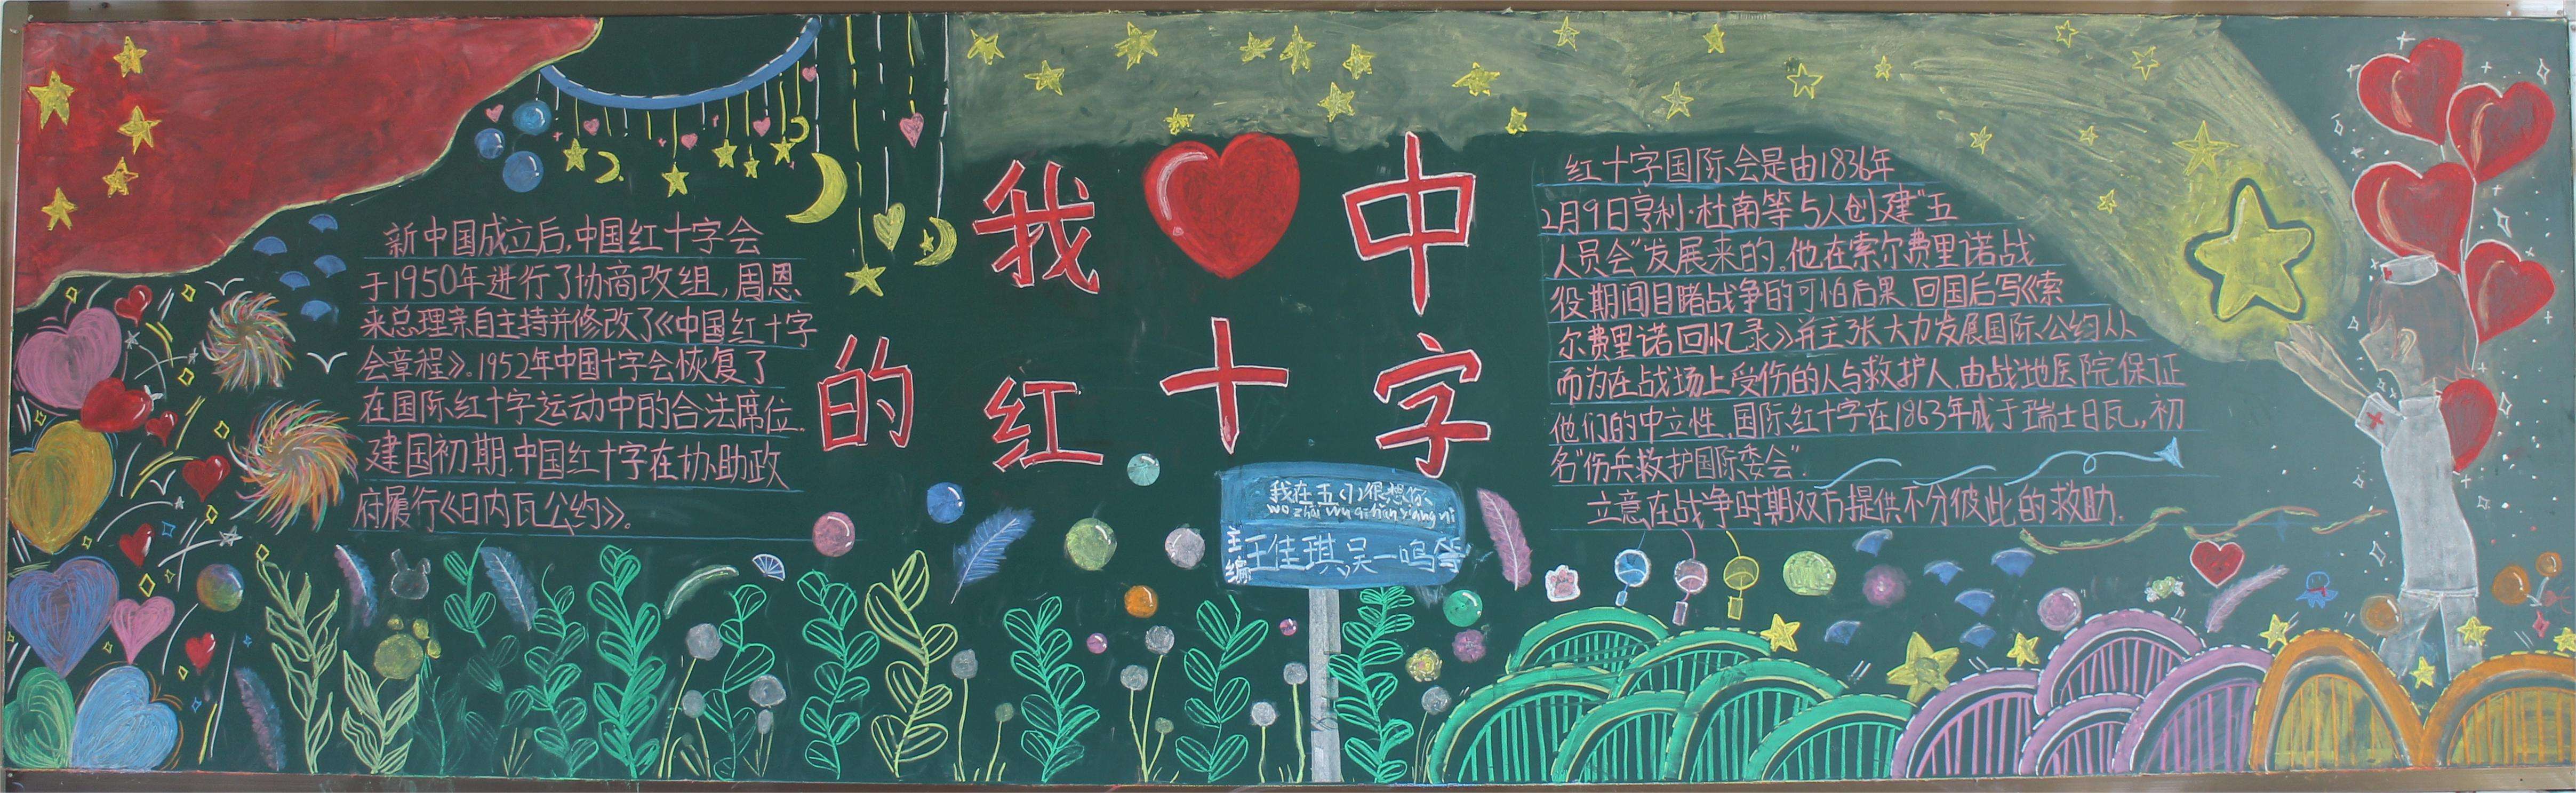 我❤中
的红十字
新中国成立后,中国红十字会
于1950年进行了协商改组,周恩
来总理亲自主持并修改了《中国红十字
会章程》。1952年中国十字会恢复了
在国际红十字运动中的合法席位.
建国初期.中国红十字在协助政
府履行《日内瓦公约》。
我在五(7)很想你
wo zhai wu qi han xiang ni
主编
王佳琪吴一鸣等
红十字国际会是由1836年
2月9日亨利·杜南等5人创建"五
人员会"发展来的。他在索尔费里诺战
役期间目睹战争的可怕后果.回国后写《索
尔费里诺回忆录》并主张大力发展国际公约从
而为在战场上受伤的人与救护人.由战地医院保证
他们的中立性.国际红十字在1863年成于瑞士日瓦,初
名"伤兵救护国际委会"
立意在战争时期双方提供不分彼此的救助.